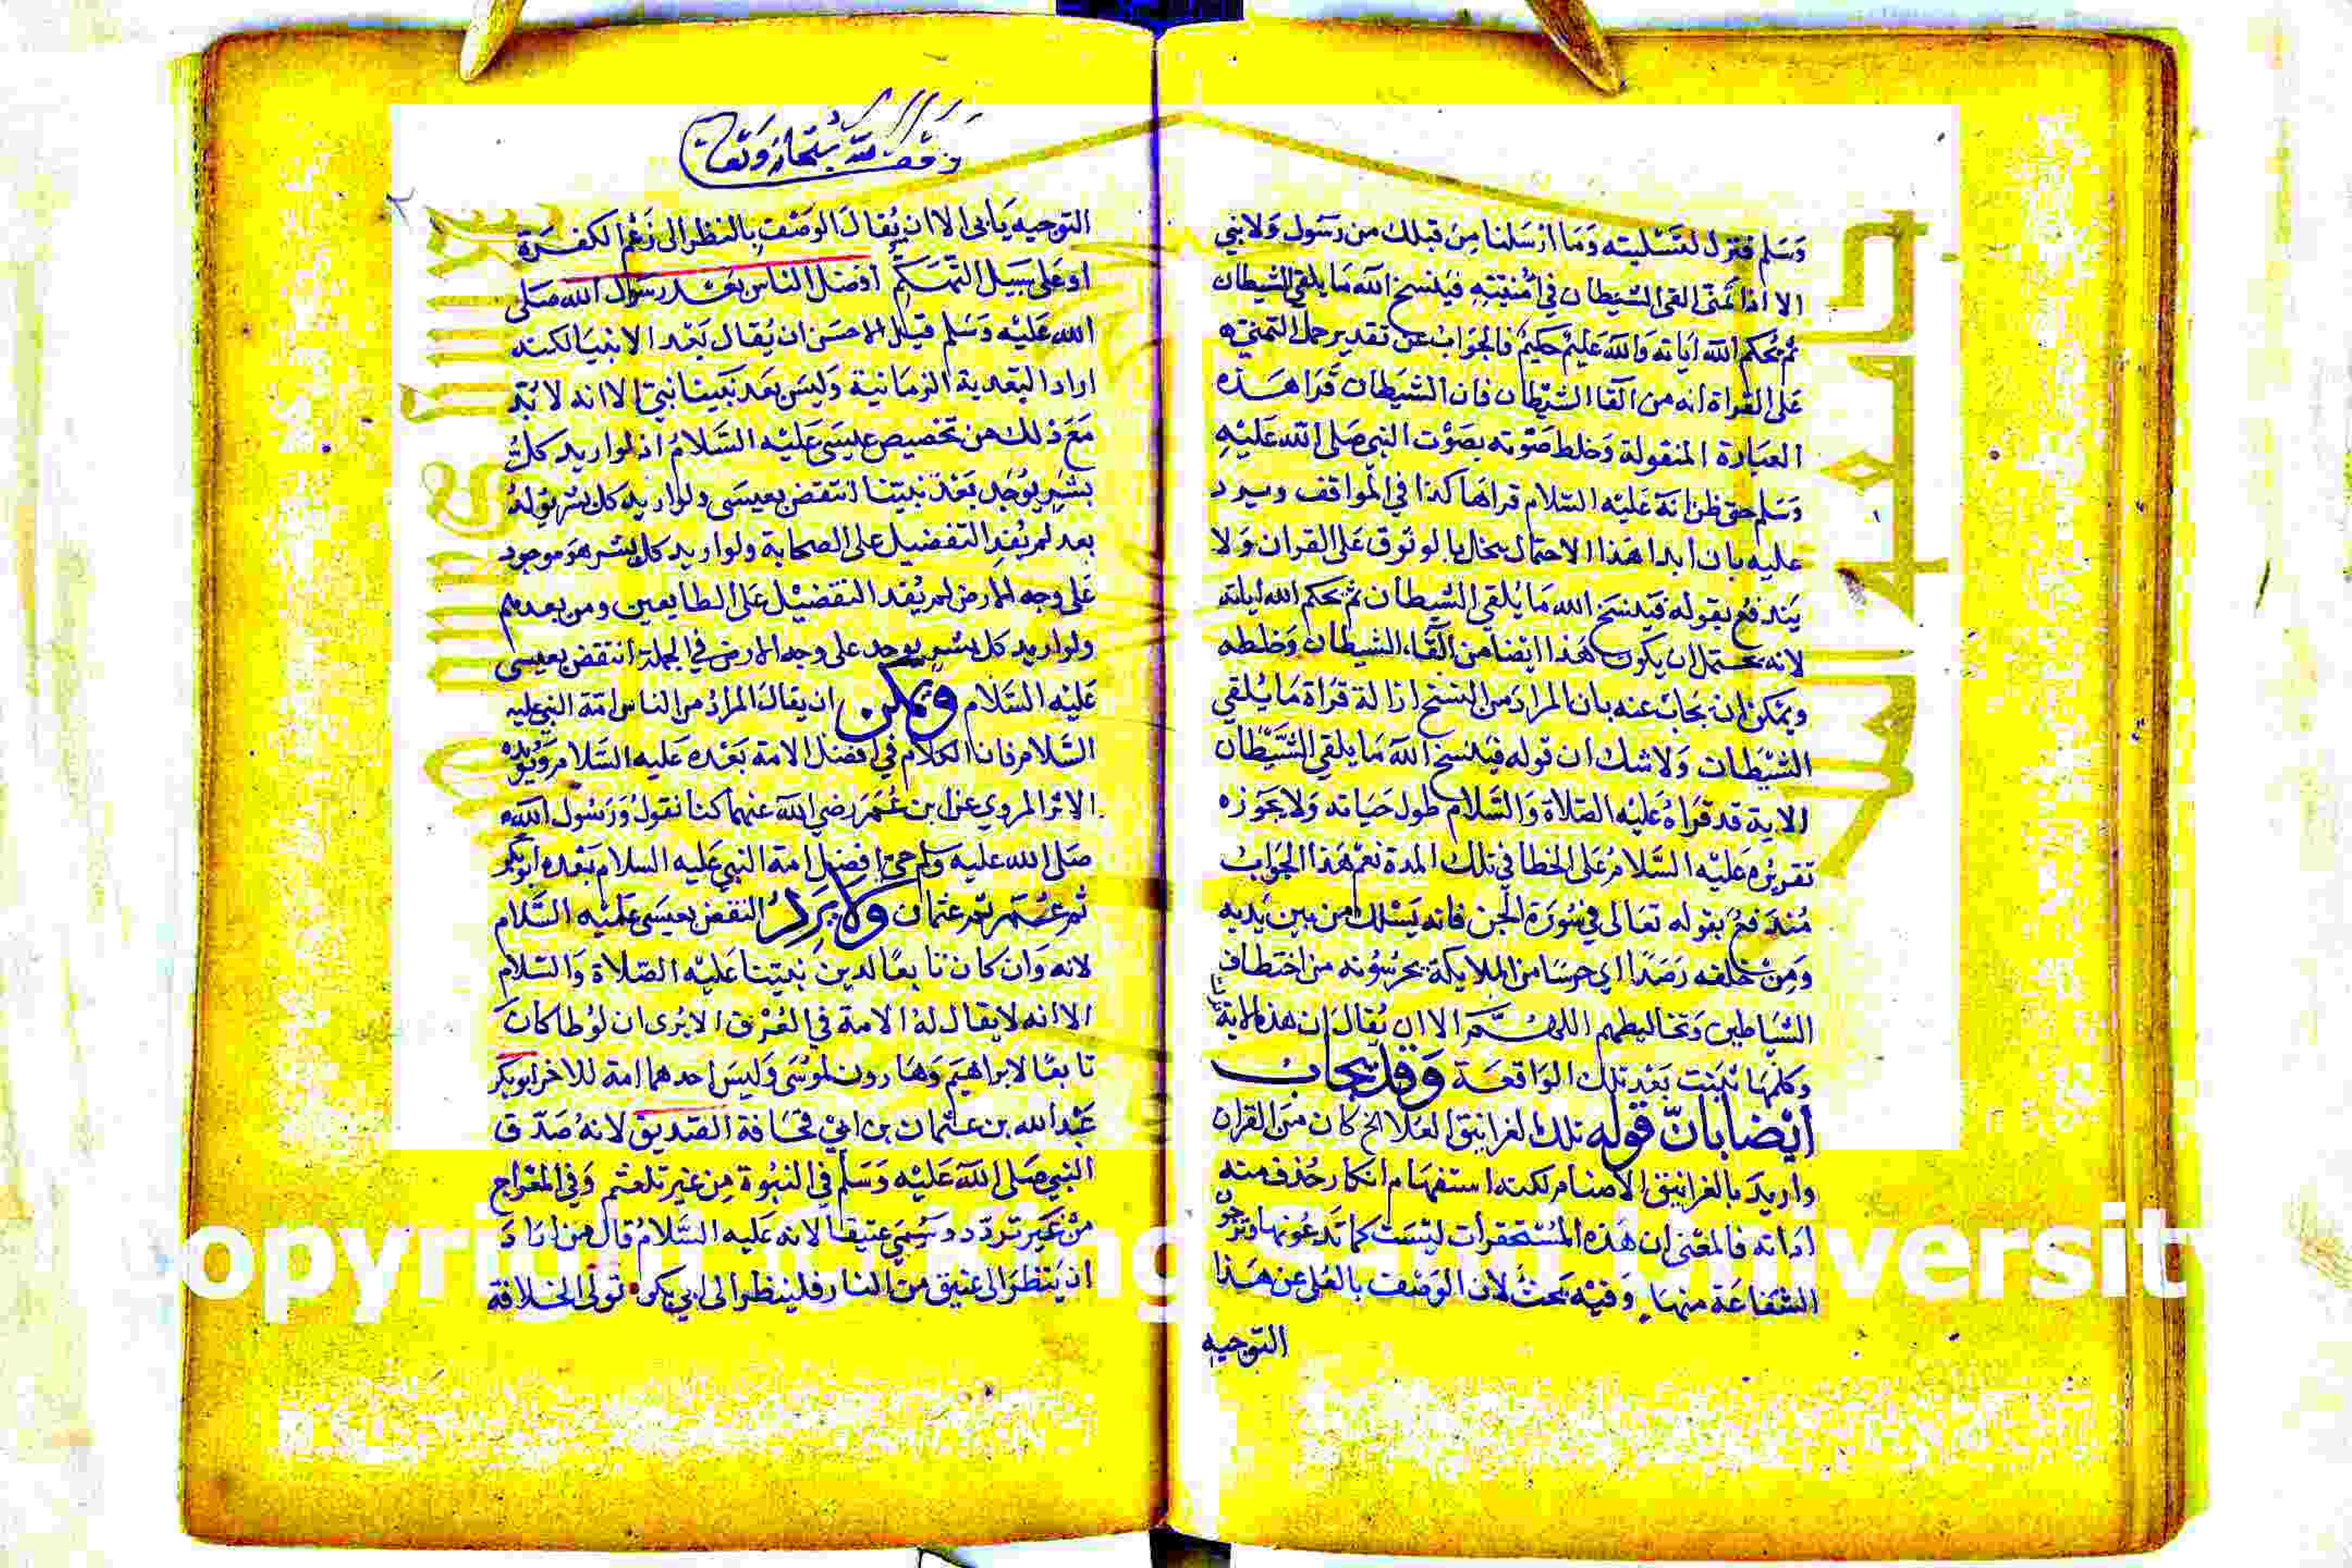 وسلم فنزل لتسليته وما ارسلنا من قبلك من رسول ولا نبي
الا اذا تمنى القى الشيطان في امنيته فينسخ الله ما يلقي الشيطان
ثم يحكم الله اياته والله عليم حكيم فالجواب عن تقدير حمل التمني
على القراة انه من القا الشيطان فان الشيطان قرا هذه
العبارة المنقولة وخلط صوته بصوت النبي صلى الله عليه
وسلم حتى ظن انه عليه السلام قراها كذا في المواقف ويرد
عليه بان ابدا هذا الاحتمال يخل بالوثوق على القران ولا
يندفع بقوله فينسخ الله ما يلقي الشيطان ثم يحكم الله اياته
لانه يحتمل ان يكون هذا ايضا من القاء الشيطان وخلطه
ويمكن ان يجاب عنه بان المراد من النسخ ازالة قراة ما يلقي
الشيطان ولا شك ان قوله فينسخ الله ما يلقي الشيطان
الاية قد قراه عليه الصلاة والسلام طول حياته ولا يجوز
تقريره عليه السلام على الخطا في تلك المدة نعم هذا الجواب
مندفع بقوله تعالى في سورة الجن فانه يسلك من بين يديه
ومن خلفه رصدا اي حرسا من الملايكة يحرسونه من اختطاف
الشياطين وتخاليطهم اللهم الا ان يقال ان هذه الاية
وكلها نبتت بعد تلك الواقعة وقد يجاب
ايضا بان قوله تلك الغرانيق العلا الخ كان من القران
واريد بالغرانيق الاصنام لكنه استفهام انكار حذف منه
اداته فالمعنى ان هذه المستحقرات ليست كما تدعونها وترجو
الشفاعة منها وفيه بحث لان الوصف بالعلى عن هذا
التوجيه
وقف لله سبحانه وتعالى
التوجيه يابى الا ان يقال الوصف بالنظر الى زعم الكفرة
او على سبيل التهكم افضل الناس بعد رسول الله صلى
الله عليه وسلم قيل الاحسن ان يقال بعد الانبيا لكنه
اراد البعدية الزمانية وليس بعد نبينا نبي الا انه لا بد
مع ذلك من تخصيص عيسى عليه السلام اذ لو اريد كل
بشر يوجد بعد نبينا انتقض بعيسى ولو اريد كل بشر يولد
بعد لم يفد التفضيل على الصحابة ولو اريد كل بشر هو موجود
على وجه الارض لم يفد التفضيل على الطابعين ومن بعدهم
ولو اريد كل بشر يوجد على وجه الارض في الجملة انتقض بعيسى
عليه السلام ويمكن ان يقال المراد من الناس امة النبي عليه
السلام فان الكلام في افضل الامة بعده عليه السلام ويويده
الاثر المروي عن ابن عمر رضي الله عنهما كنا نقول ورسول الله
صلى الله عليه وسلم حي افضل امة النبي عليه السلام بعده ابو بكر
ثم عمر ثم عثمان ولا يرد النقض بعيسى عليه السلام
لانه وان كان تابعا لدين نبينا عليه الصلاة والسلام
الا انه لا يقال له الامة في العرف الا يرى ان لوطا كان
تابعا لابراهيم وهارون لموسى وليس احدهما امة للاخر ابو بكر
عبد الله بن عثمان بن ابي قحافة الصديق لانه صدق
النبي صلى الله عليه وسلم في النبوة من غير تلعثم وفي المعراج
من غير تردد وسمي عتيقا لانه عليه السلام قال من اراد
ان ينظر الى عتيق من النار فلينظر الى ابي بكر تولى الخلافة